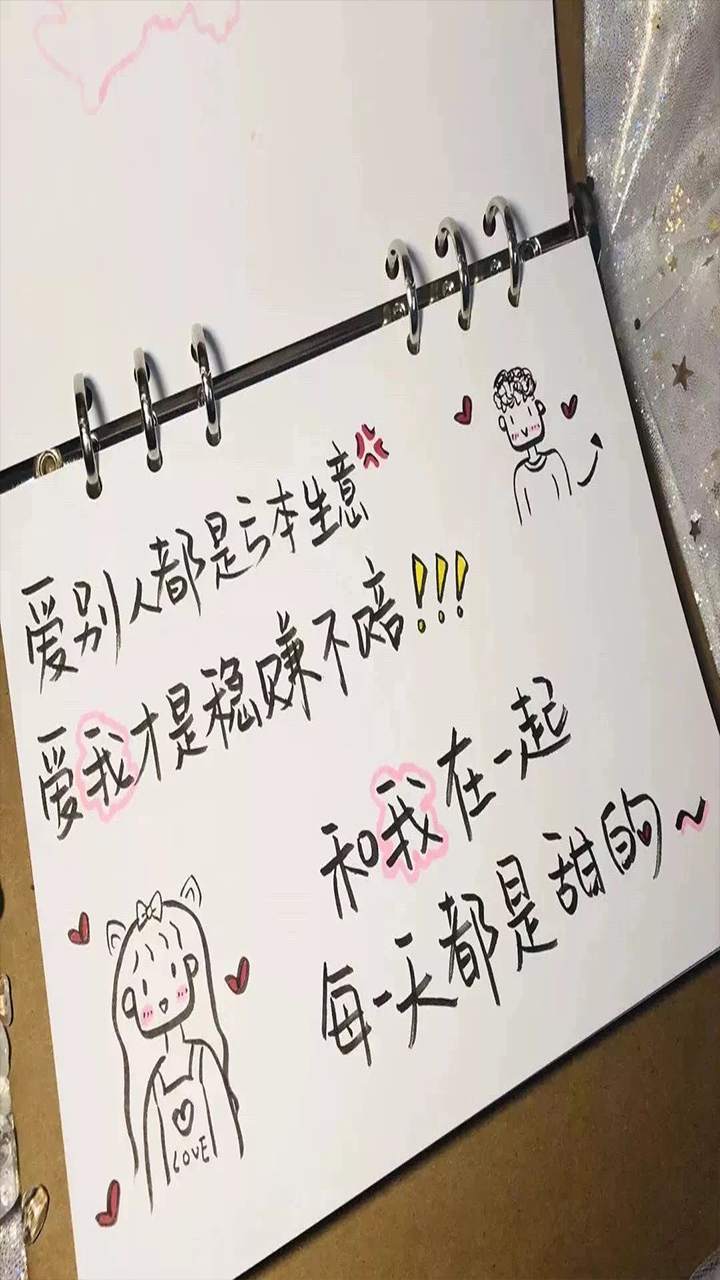 爱别人都是亏本生意
爱我才是稳赚不赔!!!
和我在一起
每一天都是甜的~
LOVE